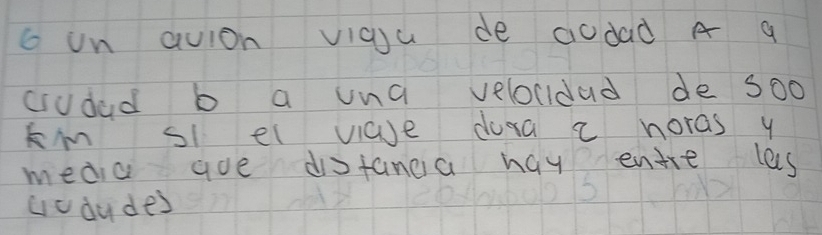 6 un avion viaja de ciudad A a
ciudad b a una velocidad de 500
km si el viaje dura 2 horas y
media que distancia hay entre las
ciudades